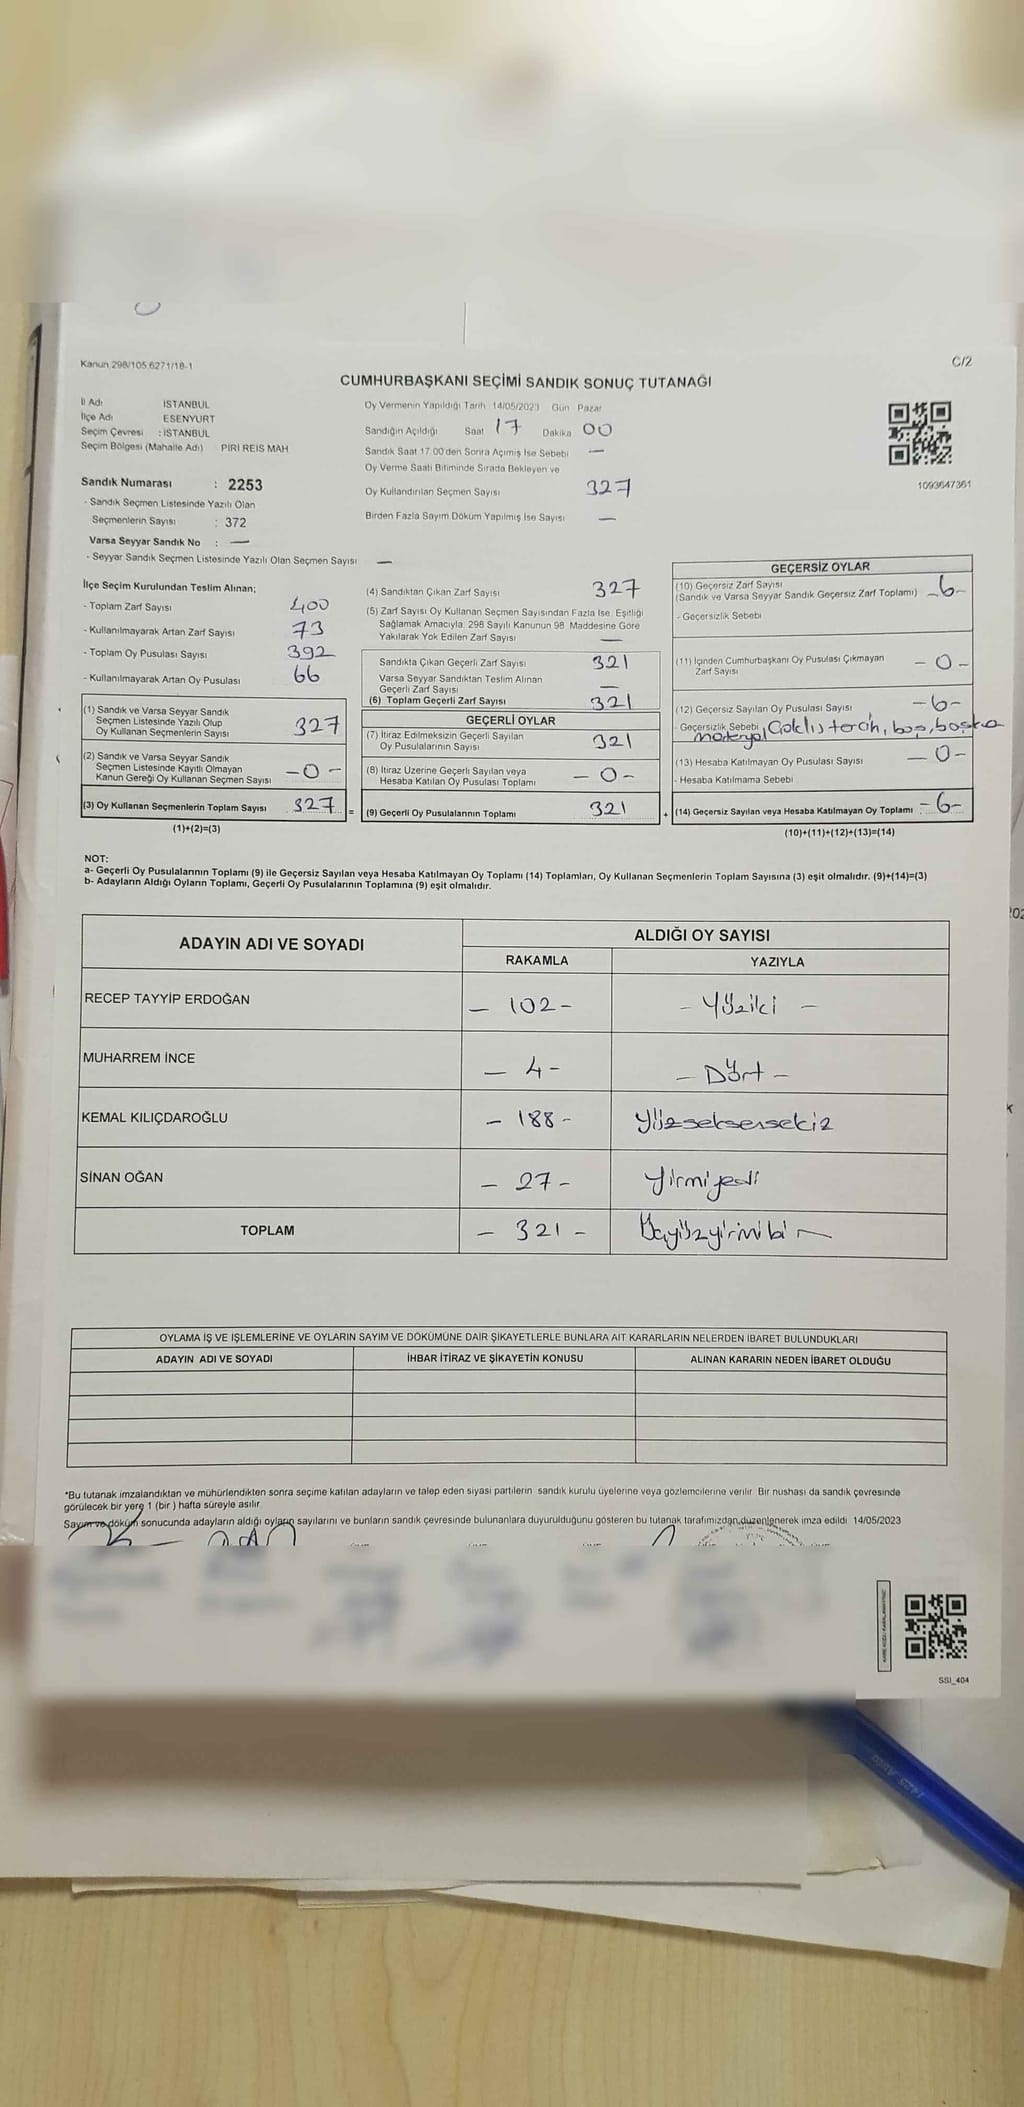 Kanun 298/105 6271/18-1
C/2
CUMHURBAŞKANI SEÇİMİ SANDIK SONUÇ TUTANAĞI
İl Adı : İSTANBUL
İlçe Adı : ESENYURT
Seçim Çevresi : İSTANBUL
Seçim Bölgesi (Mahalle Adı) PİRİ REİS MAH
Sandık Numarası : 2253
- Sandık Seçmen Listesinde Yazılı Olan
Seçmenlerin Sayısı : 372
Varsa Seyyar Sandık No : —
- Seyyar Sandık Seçmen Listesinde Yazılı Olan Seçmen Sayısı —
Oy Vermenin Yapıldığı Tarih 14/05/2023 Gün Pazar
Sandığın Açıldığı Saat 17 Dakika 00
Sandık Saat 17.00'den Sonra Açımış İse Sebebi —
Oy Verme Saati Bitiminde Sırada Bekleyen ve
Oy Kullandırılan Seçmen Sayısı 327
Birden Fazla Sayım Döküm Yapılmış İse Sayısı —
1093647361
İlçe Seçim Kurulundan Teslim Alınan;
- Toplam Zarf Sayısı 400
- Kullanılmayarak Artan Zarf Sayısı 73
- Toplam Oy Pusulası Sayısı 392
- Kullanılmayarak Artan Oy Pusulası 66
(1) Sandık ve Varsa Seyyar Sandık
Seçmen Listesinde Yazılı Olup
Oy Kullanan Seçmenlerin Sayısı 327
(2) Sandık ve Varsa Seyyar Sandık
Seçmen Listesinde Kayıtlı Olmayan
Kanun Gereği Oy Kullanan Seçmen Sayısı -0-
(3) Oy Kullanan Seçmenlerin Toplam Sayısı 327 =
(1)+(2)=(3)
(4) Sandıktan Çıkan Zarf Sayısı 327
(5) Zarf Sayısı Oy Kullanan Seçmen Sayısından Fazla İse, Eşitliği
Sağlamak Amacıyla, 298 Sayılı Kanunun 98. Maddesine Göre
Yakılarak Yok Edilen Zarf Sayısı —
Sandıkta Çıkan Geçerli Zarf Sayısı 321
Varsa Seyyar Sandıktan Teslim Alınan
Geçerli Zarf Sayısı —
(6) Toplam Geçerli Zarf Sayısı 321
GEÇERLİ OYLAR
(7) İtiraz Edilmeksizin Geçerli Sayılan
Oy Pusulalarının Sayısı 321
(8) İtiraz Üzerine Geçerli Sayılan veya
Hesaba Katılan Oy Pusulası Toplamı -0-
(9) Geçerli Oy Pusulalarının Toplamı 321 +
GEÇERSİZ OYLAR
(10) Geçersiz Zarf Sayısı
(Sandık ve Varsa Seyyar Sandık Geçersiz Zarf Toplamı) -6-
- Geçersizlik Sebebi
(11) İçinden Cumhurbaşkanı Oy Pusulası Çıkmayan
Zarf Sayısı -0-
(12) Geçersiz Sayılan Oy Pusulası Sayısı -6-
- Geçersizlik Sebebi Çoklu tercih, boş, başka
materyal
(13) Hesaba Katılmayan Oy Pusulası Sayısı -0-
- Hesaba Katılmama Sebebi
(14) Geçersiz Sayılan veya Hesaba Katılmayan Oy Toplamı : -6-
(10)+(11)+(12)+(13)=(14)
NOT:
a- Geçerli Oy Pusulalarının Toplamı (9) ile Geçersiz Sayılan veya Hesaba Katılmayan Oy Toplamı (14) Toplamları, Oy Kullanan Seçmenlerin Toplam Sayısına (3) eşit olmalıdır. (9)+(14)=(3)
b- Adayların Aldığı Oyların Toplamı, Geçerli Oy Pusulalarının Toplamına (9) eşit olmalıdır.
ADAYIN ADI VE SOYADI
ALDIĞI OY SAYISI
RAKAMLA YAZIYLA
RECEP TAYYİP ERDOĞAN - 102 - - Yüziki -
MUHARREM İNCE - 4 - - Dört -
KEMAL KILIÇDAROĞLU - 188 - Yüzseksensekiz
SİNAN OĞAN - 27 - Yirmiyedi
TOPLAM - 321 - Üçyüzyirmibir
OYLAMA İŞ VE İŞLEMLERİNE VE OYLARIN SAYIM VE DÖKÜMÜNE DAİR ŞİKAYETLERLE BUNLARA AİT KARARLARIN NELERDEN İBARET BULUNDUKLARI
ADAYIN ADI VE SOYADI İHBAR İTİRAZ VE ŞİKAYETİN KONUSU ALINAN KARARIN NEDEN İBARET OLDUĞU
*Bu tutanak imzalandıktan ve mühürlendikten sonra seçime katılan adayların ve talep eden siyasi partilerin sandık kurulu üyelerine veya gözlemcilerine verilir. Bir nüshası da sandık çevresinde
görülecek bir yere 1 (bir ) hafta süreyle asılır.
Sayım ve döküm sonucunda adayların aldığı oyların sayılarını ve bunların sandık çevresinde bulunanlara duyurulduğunu gösteren bu tutanak tarafımızdan düzenlenerek imza edildi. 14/05/2023
SSI_404